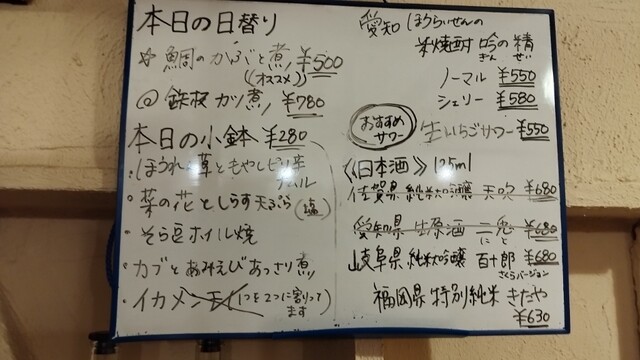 本日の日替り
☆ 鯛のかぶと煮 ¥500
((オススメ))
◎ 鉄板カツ煮 ¥780
本日の小鉢 ¥280
・ほうれん草ともやしピリ辛
ナムル
・菜の花としらす天ぷら (塩)
・そら豆ホイル焼
・カブとあみえびあっさり煮
・イカメンチ (1つを2つに割ってます)
愛知 ほうらいせんの
米焼酎 吟の精
ぎん せい
ノーマル ¥550
シェリー ¥580
おすすめサワー
生いちごサワー ¥550
《日本酒》 125ml
佐賀県 純米吟醸 天吹 ¥680
愛知県 生原酒 二兎 ¥680
にと
岐阜県 純米吟醸 百十郎 ¥680
さくらバージョン
福岡県 特別純米 きたや
¥630